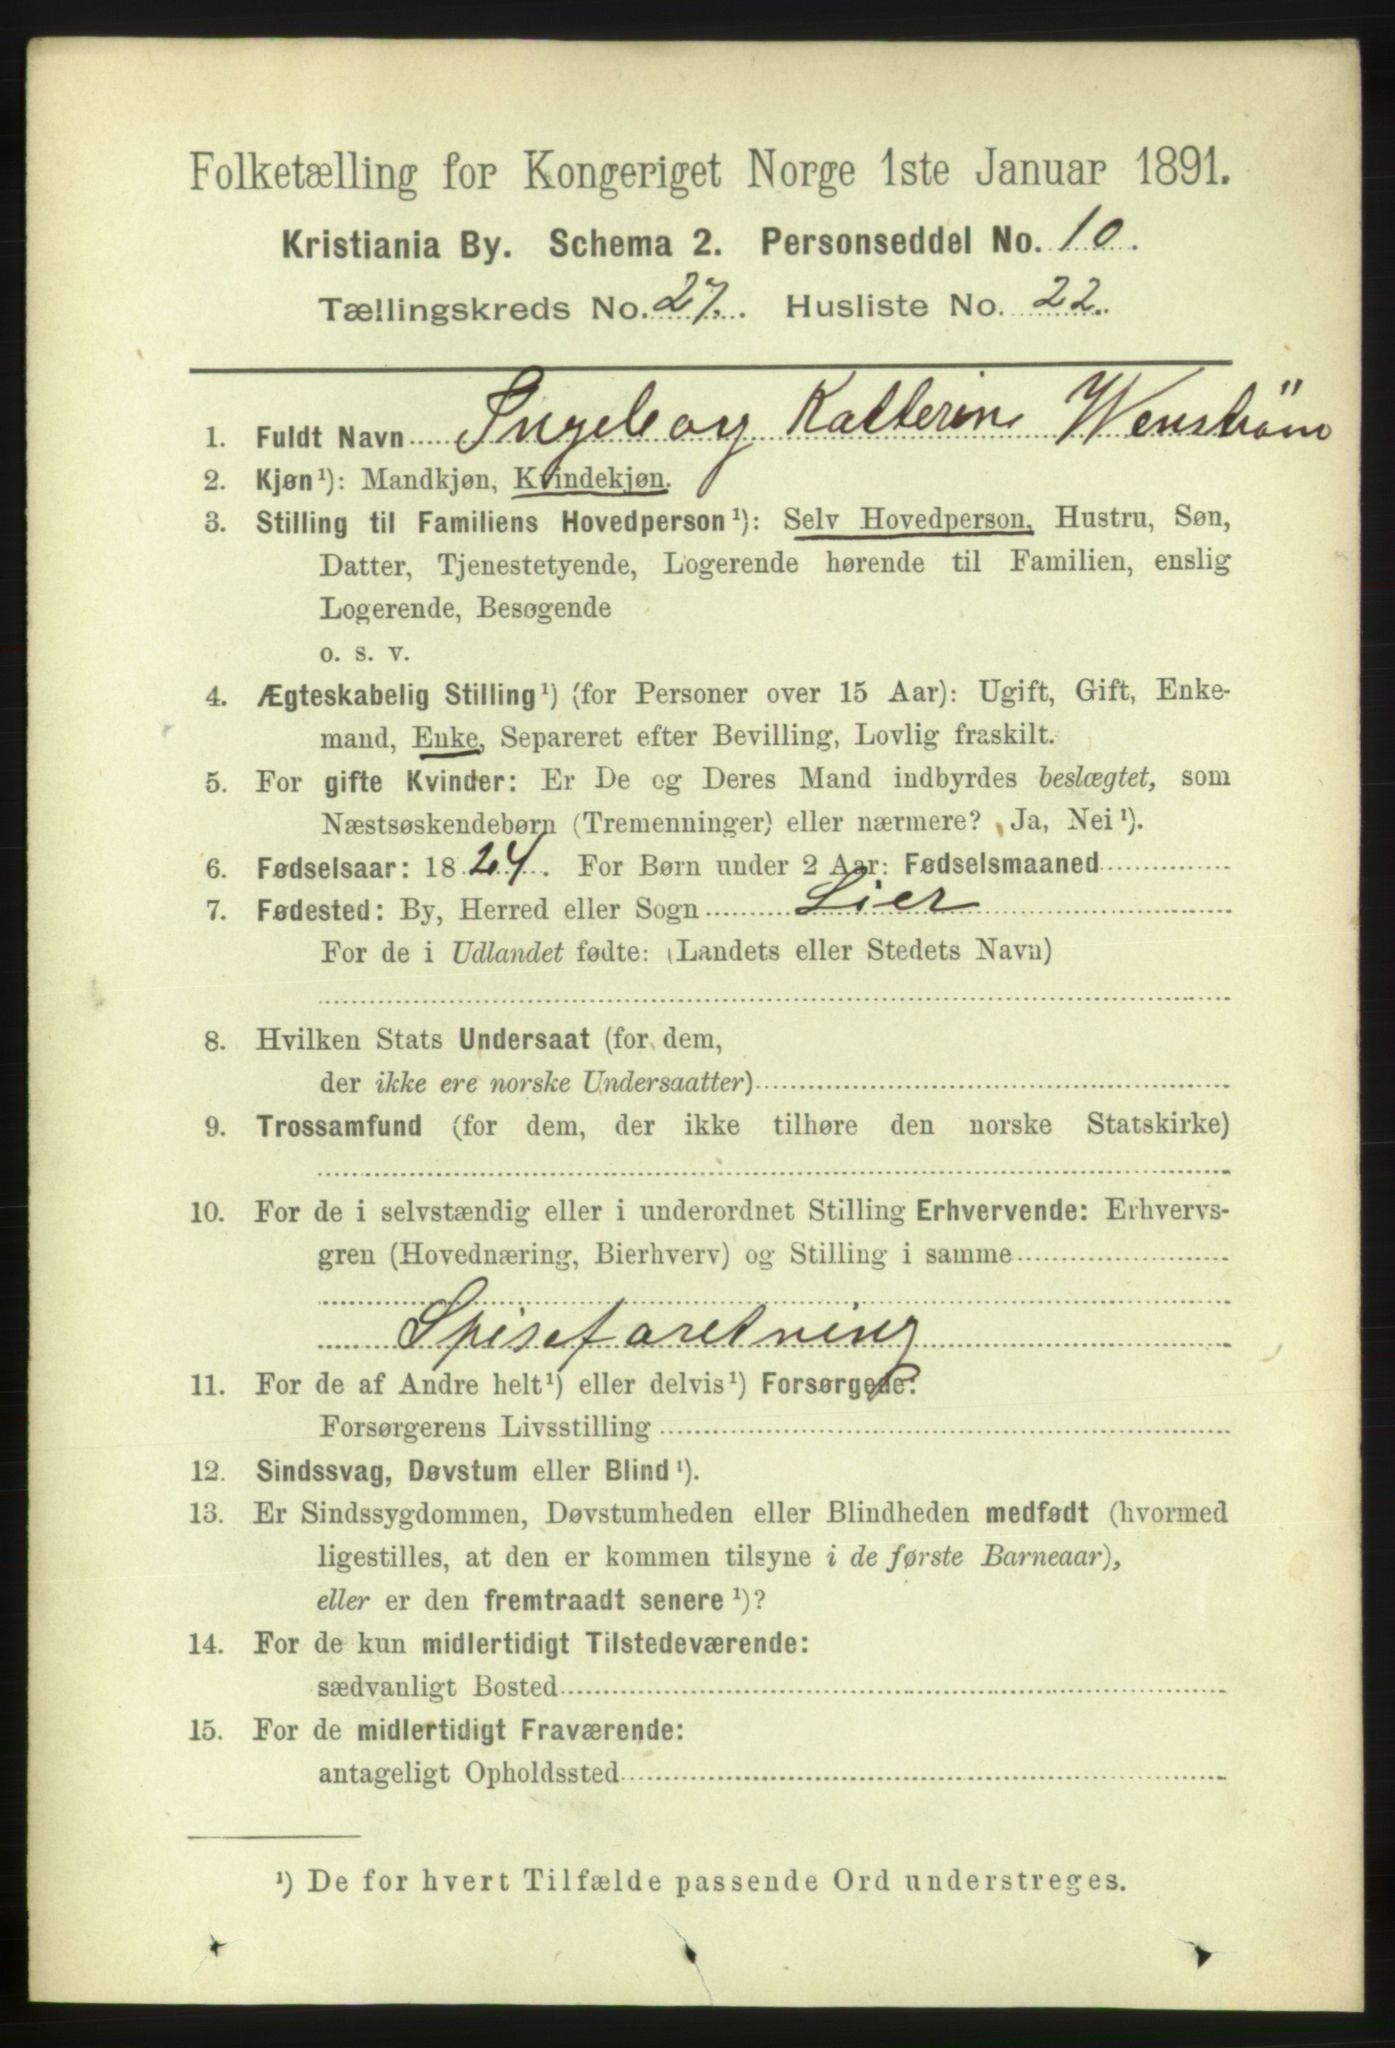 Folketælling for Kongeriget Norge 1ste Januar 1891.
Kristiania By. Schema 2. Personseddel No. 10.
Tællingskreds No. 27. Husliste No. 22.
1. Fuldt Navn Ingeborg Katterine Wenström
2. Kjøn¹): Mandkjøn, Kvindekjøn.
3. Stilling til Familiens Hovedperson¹): Selv Hovedperson, Hustru, Søn,
Datter, Tjenestetyende, Logerende hørende til Familien, enslig
Logerende, Besøgende
o. s. v.
4. Ægteskabelig Stilling¹) (for Personer over 15 Aar): Ugift, Gift, Enke-
mand, Enke, Separeret efter Bevilling, Lovlig fraskilt.
5. For gifte Kvinder: Er De og Deres Mand indbyrdes beslægtet, som
Næstsøskendebørn (Tremenninger) eller nærmere? Ja, Nei¹).
6. Fødselsaar: 1824. For Børn under 2 Aar: Fødselsmaaned
7. Fødested: By, Herred eller Sogn Lier
For de i Udlandet fødte: (Landets eller Stedets Navn)
8. Hvilken Stats Undersaat (for dem,
der ikke ere norske Undersaatter)
9. Trossamfund (for dem, der ikke tilhøre den norske Statskirke)
10. For de i selvstændig eller i underordnet Stilling Erhvervende: Erhvervs-
gren (Hovednæring, Bierhverv) og Stilling i samme
Spiseforetning
11. For de af Andre helt¹) eller delvis¹) Forsørgede:
Forsørgerens Livsstilling
12. Sindssvag, Døvstum eller Blind¹).
13. Er Sindssygdommen, Døvstumheden eller Blindheden medfødt (hvormed
ligestilles, at den er kommen tilsyne i de første Barneaar),
eller er den fremtraadt senere¹)?
14. For de kun midlertidigt Tilstedeværende:
sædvanligt Bosted
15. For de midlertidigt Fraværende:
antageligt Opholdssted
¹) De for hvert Tilfælde passende Ord understreges.